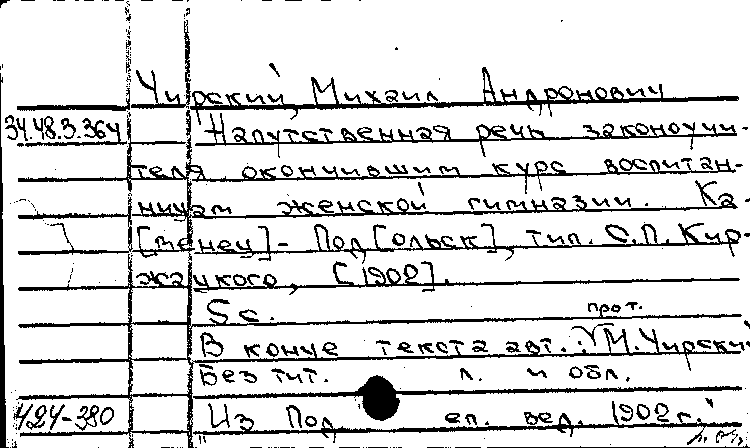 Чирский, Михаил Андронович
34.48.3.364 Напутственная речь законоучи-
теля окончившим курс воспитан-
ницам женской гимназии. Ка-
[менец]-Под[ольск], тип. С.П. Кир-
жацкого, [1902].
5 с.
прот.
В конце текста авт.: М. Чирский
Без тит. л. и обл.
424-380 "Из Под. еп. вед. 1902 г."